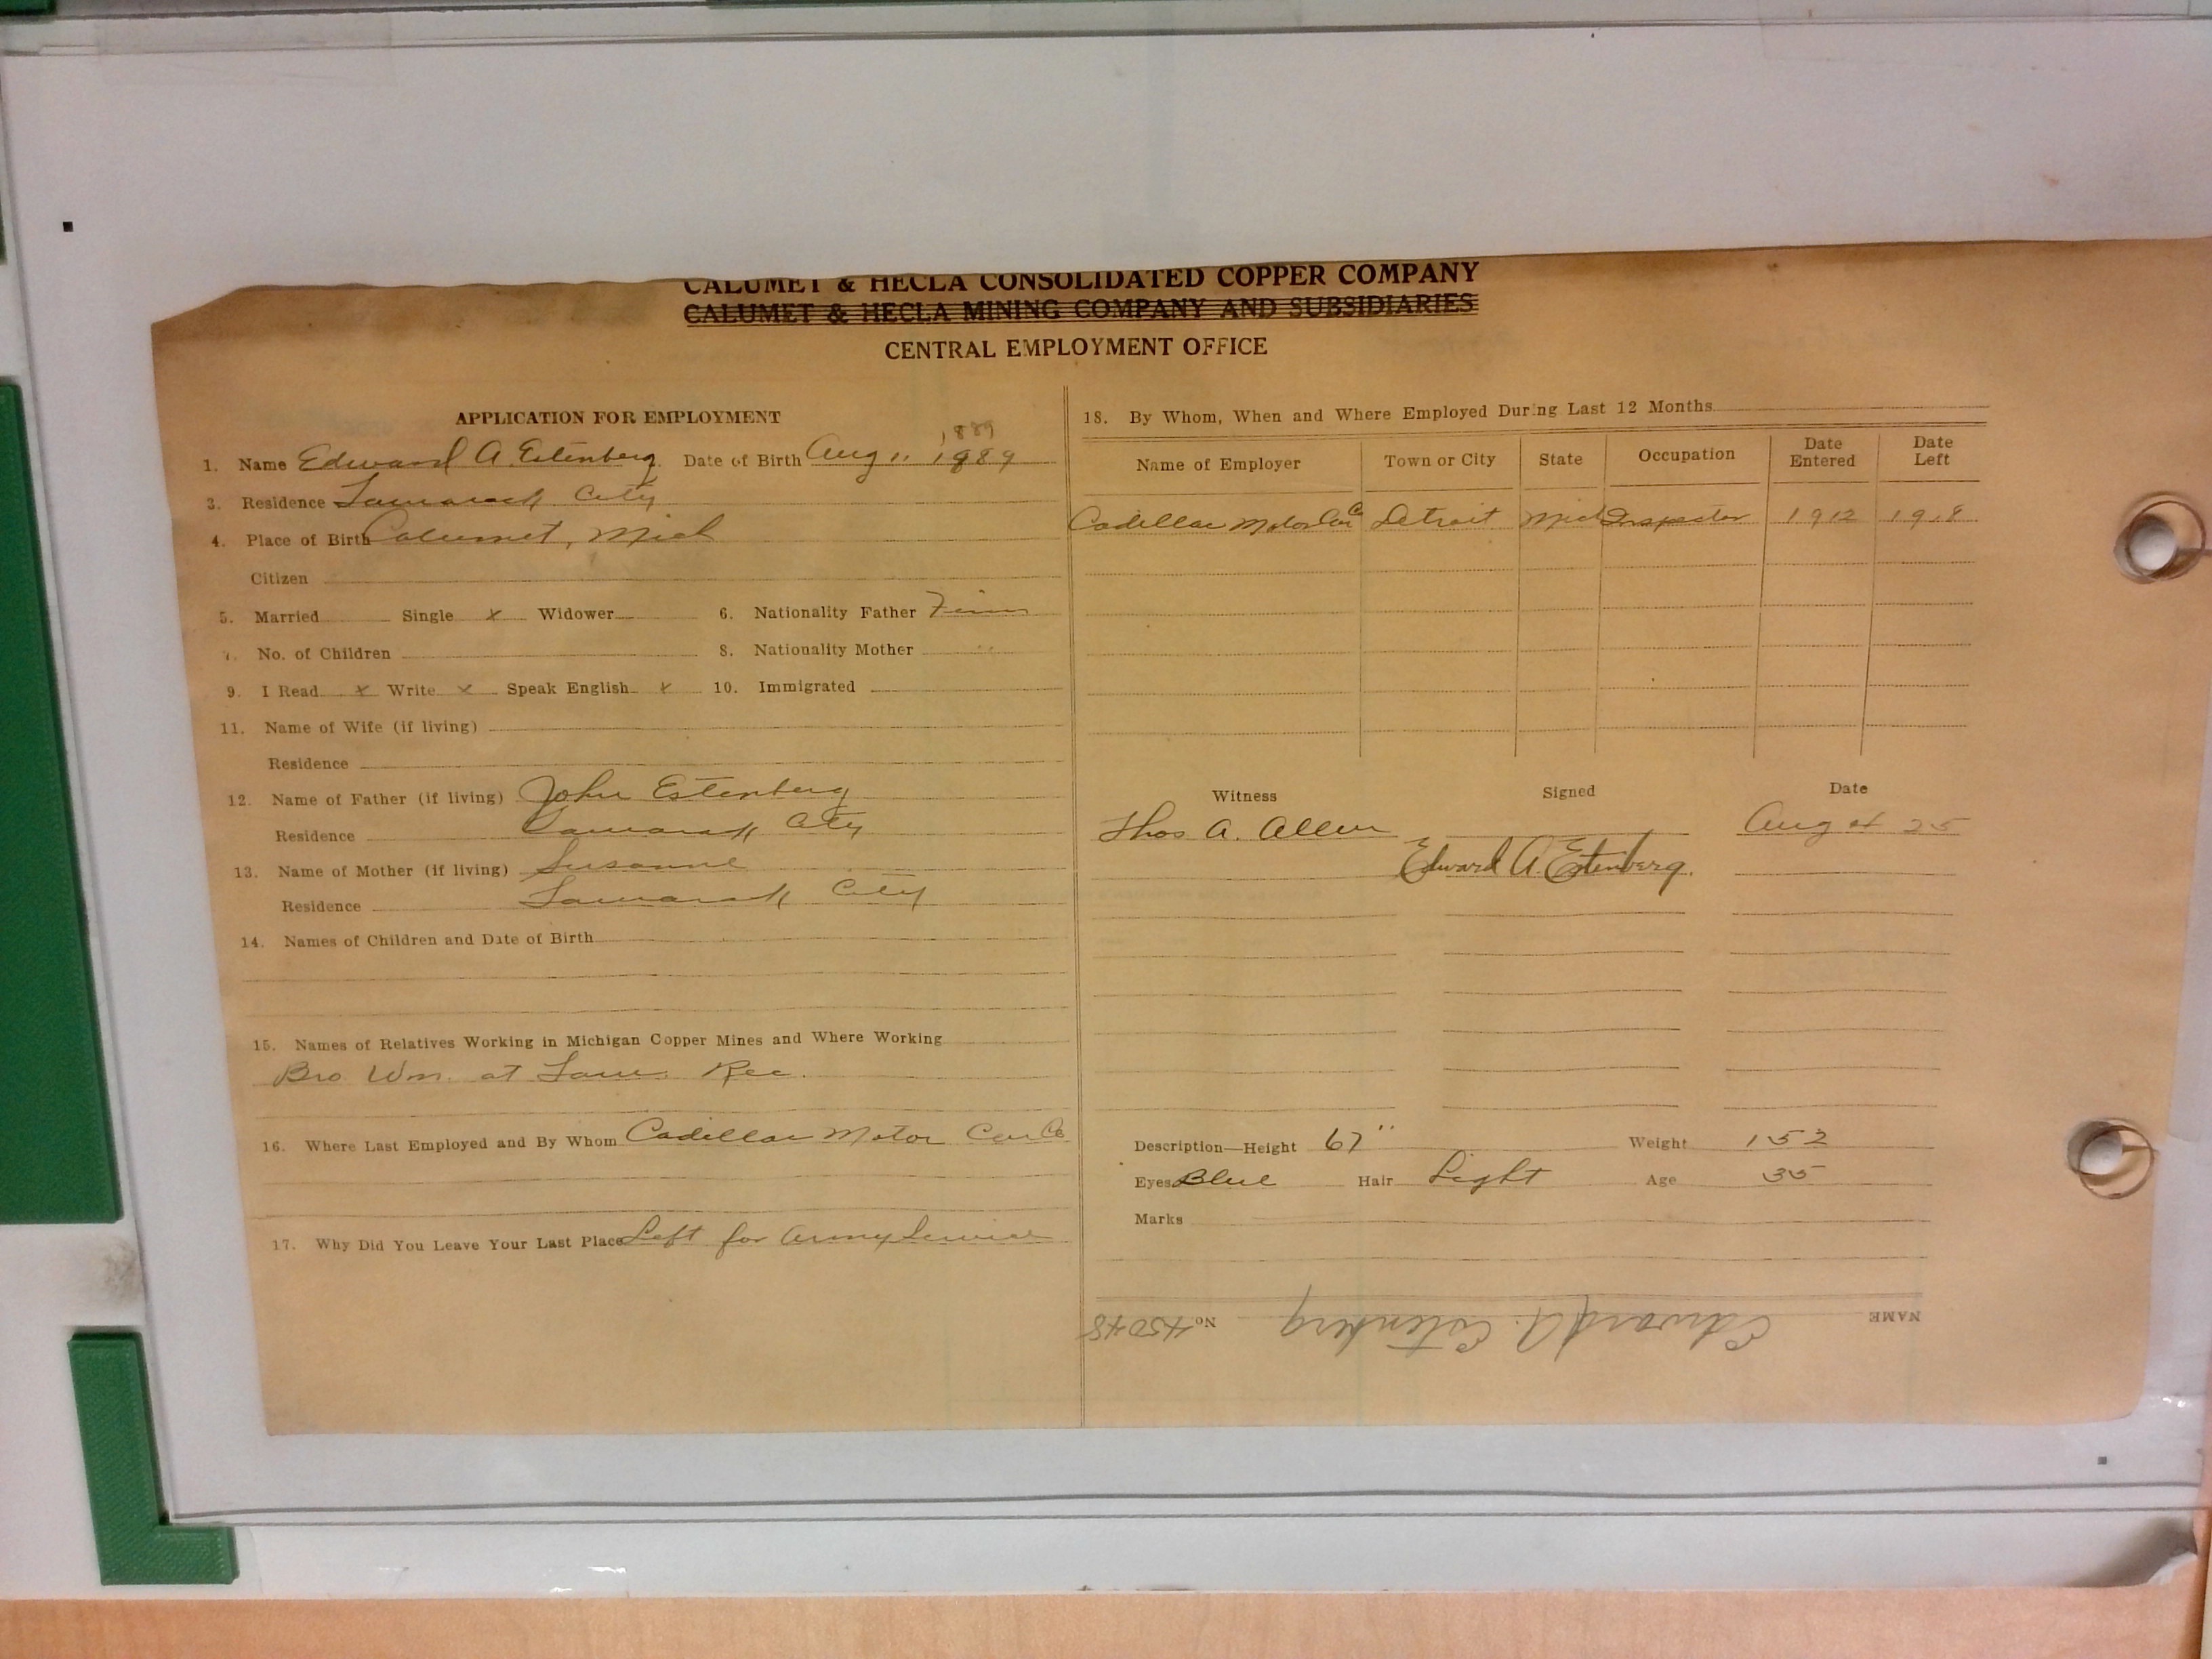 CALUMET & HECLA CONSOLIDATED COPPER COMPANY
CALUMET & HECLA MINING COMPANY AND SUBSIDIARIES
CENTRAL EMPLOYMENT OFFICE
APPLICATION FOR EMPLOYMENT
1889
1. Name Edward A. Estenberg. Date of Birth Aug 11 1889
3. Residence Tamarack City
4. Place of Birth Calumet, Mich
Citizen
5. Married Single x Widower 6. Nationality Father Finn
7. No. of Children 8. Nationality Mother "
9. I Read x Write x Speak English x 10. Immigrated
11. Name of Wife (if living)
Residence
12. Name of Father (if living) John Estenberg
Residence Tamarack City
13. Name of Mother (if living) Susanne
Residence Tamarack City
14. Names of Children and Date of Birth
15. Names of Relatives Working in Michigan Copper Mines and Where Working
Bro Wm. at Tam. Rec.
16. Where Last Employed and By Whom Cadillac Motor Car Co
17. Why Did You Leave Your Last Place Left for Army Service
18. By Whom, When and Where Employed During Last 12 Months
Name of Employer Town or City State Occupation Date Entered Date Left
Cadillac Motor Car Co Detroit Mich Inspector 1912 1918
Witness Signed Date
Thos A. Allen Aug 25
Edward A. Estenberg.
Description—Height 67" Weight 152
Eyes Blue Hair Light Age 35
Marks
NAME Edward A. Estenberg No 45048